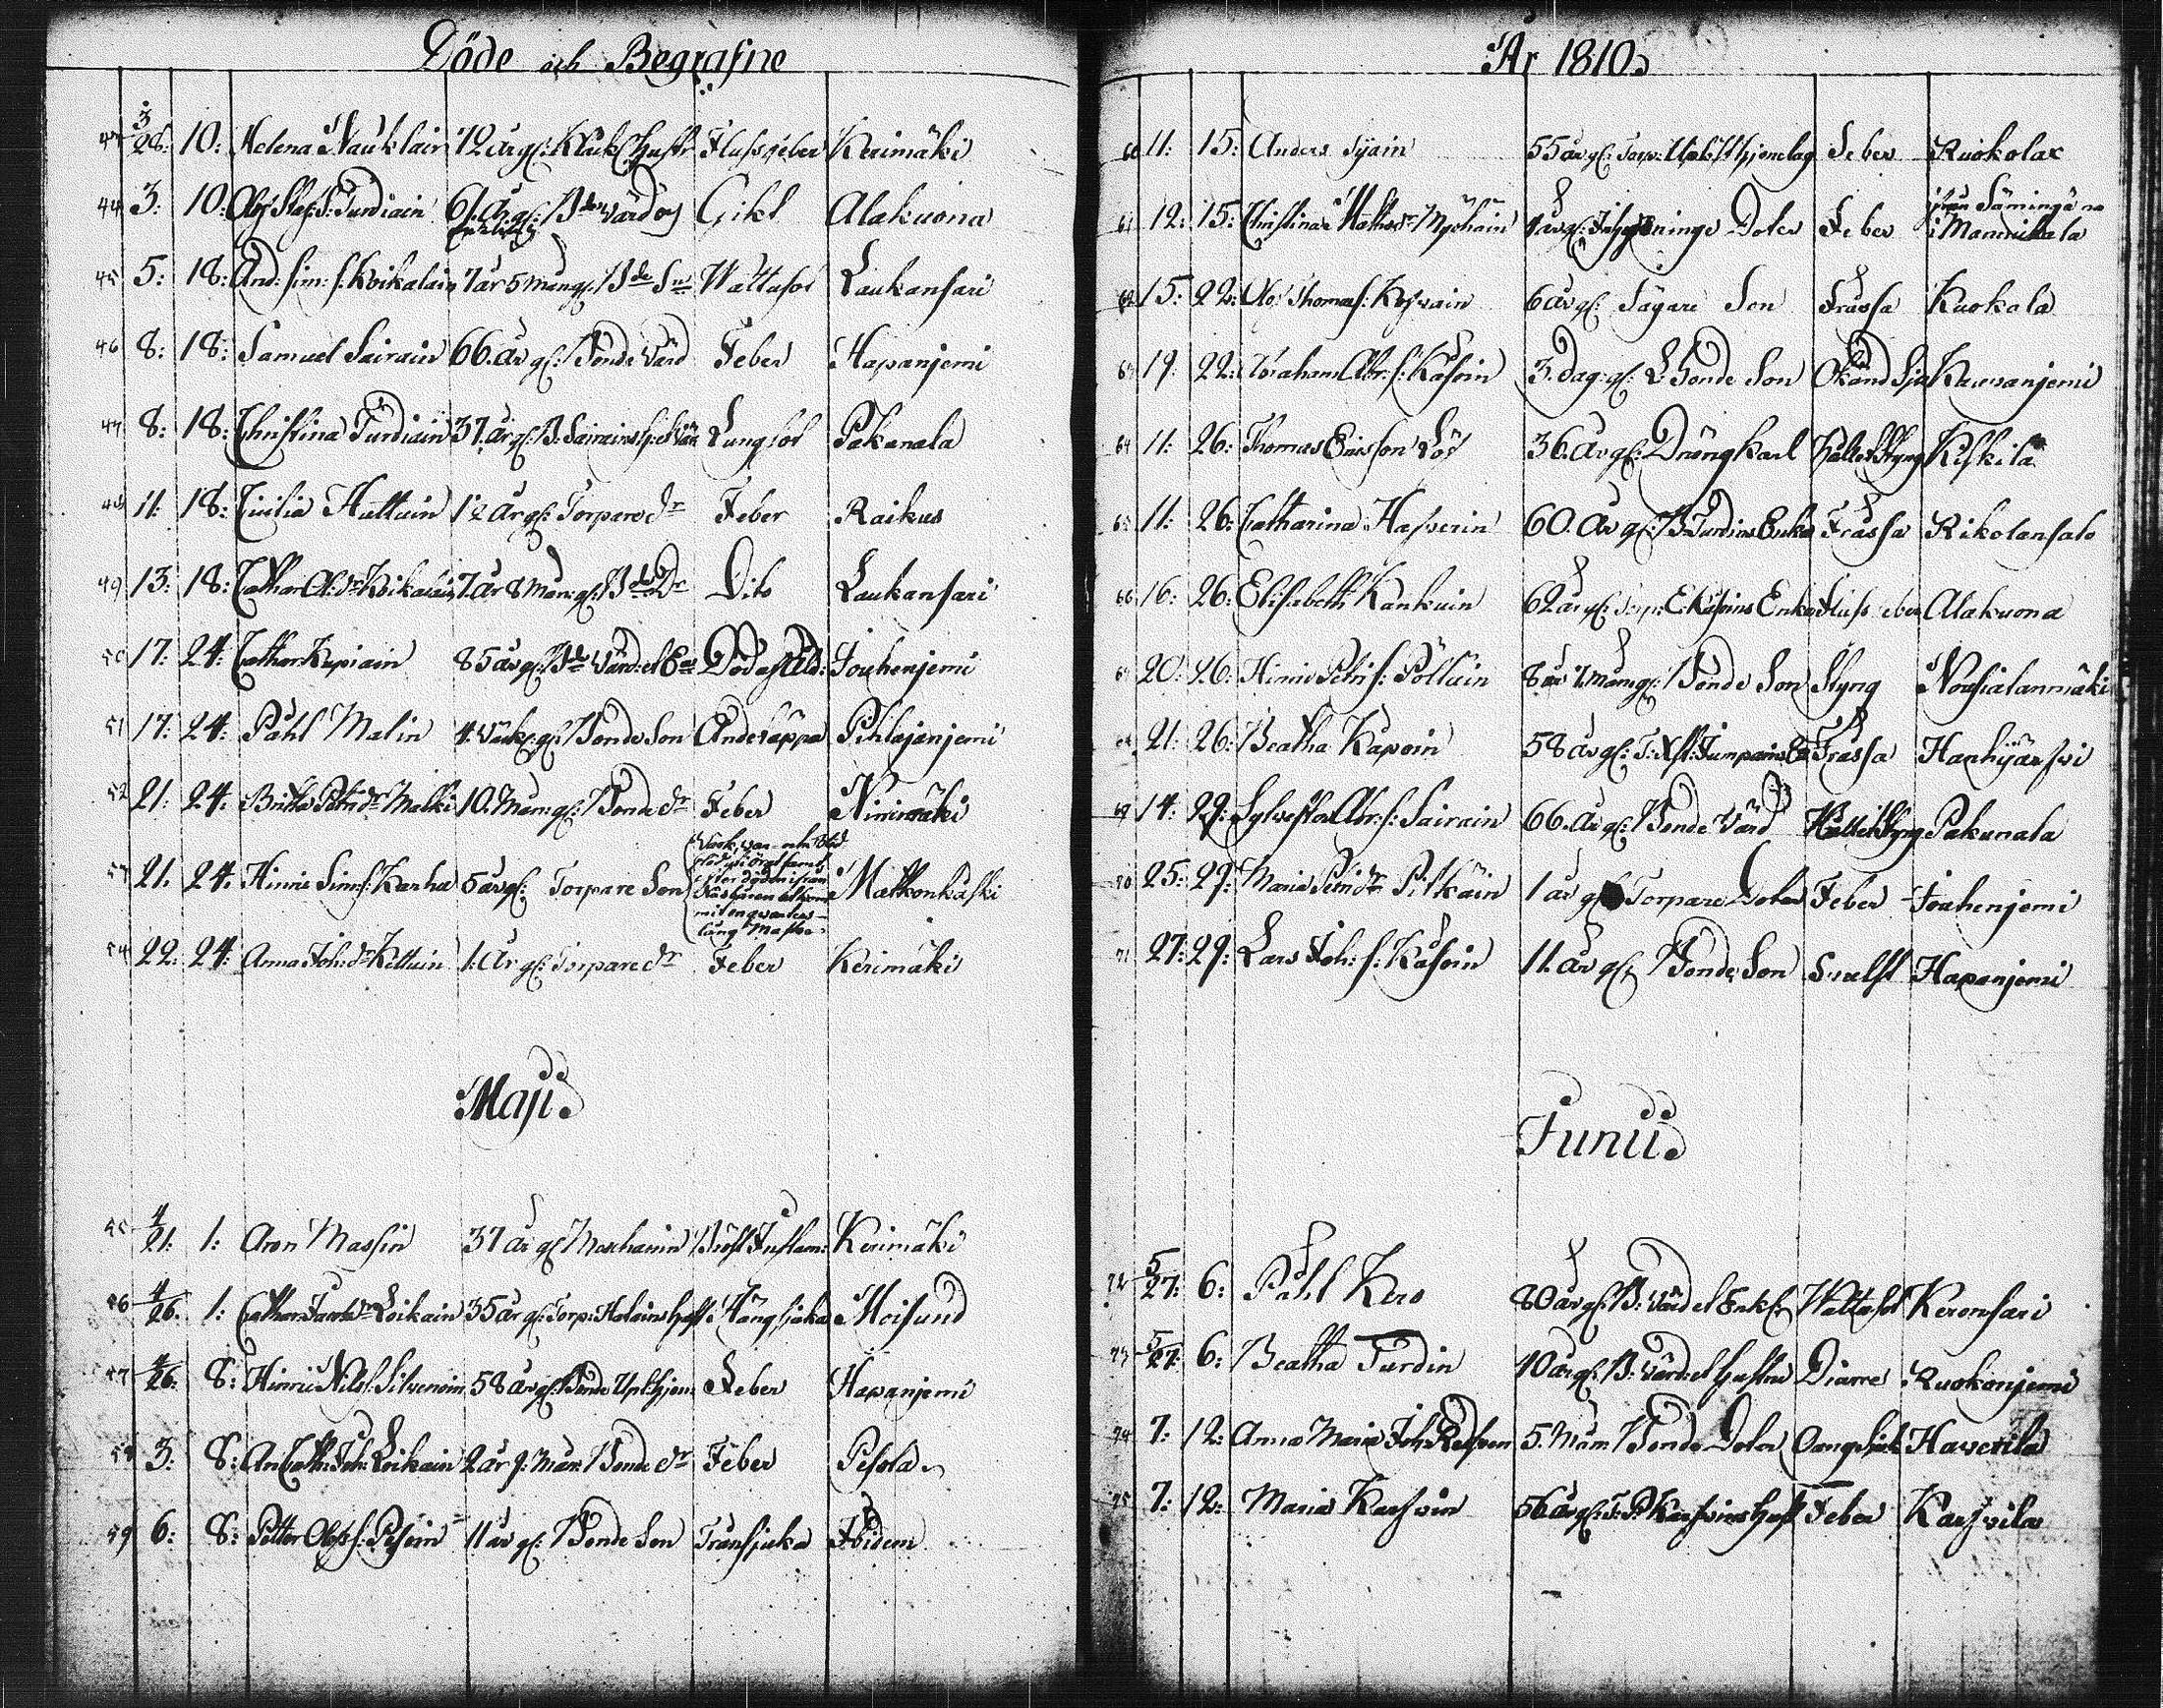 Döde och Begrafne
43 3/28: 10: Helena Nauklain 72 år gl: Kläck Hustr Flussfeber Kerimäki
44 3: 10: Olof Staf: S: Turdiain 61. år gl: Bde Värd och Enkling Gikt Alakuona
45 5: 18: And: Sim: S: Koikalain 7 år 5 mån gl: Bde Sn Wattusot Laukansari
46 8: 18: Samuel Sairain 66. år gl: Bonde Värd Feber Hapanjemi
47 8: 18: Christina Turdiain 37. år gl: B: Sairains Lungsot Pakanala
48 11: 18: Cicilia Huttuin 1½ år gl: Torpare dr Feber Raikus
49 13: 18: Cathar Ol: dr Koikalain 7. år 8 mån: gl: Bde Dr Dito Laukansari
50 17: 24: Cathar Kupiain 85 år gl: Bde Värd: el Ea Död af Åld: Jouhenjemi
51 17: 24: Påhl Malin 4. Veck: gl: Bonde Son Andetäppa Pihlajanjemi
52 21: 24: Britha Petri dr Malki 10. Mån gl: Bonde dr Feber Ninimäki
53 21: 24: Hinric Sim: S: Karha 5 år gl: Torpare Son Wark, war och blod
efter döden ifrån
Näsbåren utkom
mit en qvarters
lång Mask Matkonkaski
54 22: 24: Anna Joh: dr Kettuin 1: år gl: Torpare dr Feber Kerimäki
Maji
55 4/21: 1: Aron Massin 37 år gl Bröst Inflam: Kerimäki
56 4/26: 1: Cathar Jacobs dr Loikain 35 år gl: Torp: Holains Hust: Hängsjuka Moisund
57 4/26: 8: Hinric Nils: Silvenoin 58 år gl: Bonde Feber Hapanjemi
58 3: 8: An Cath: Joh: Loikain 2 år 9: mån: Bonde dr Feber Pesola
59 6: 8: Petter Olofs S: Pesoin 11 år gl: Bonde Son Transjuka Ibidem
År 1810
60 11: 15: Anders Syäin 55 år gl: Torp: Feber Ruokolax
61 12: 15: Christina Math: dr Mychäin 4 år gl: Inhysinge Doter Feber från Säminge
i Mannikala
62 15: 22: Olof Thomas S: Kosvain 6 år gl: Sågare Son Trässa Kuokala
63 19: 22: Abraham Abr: S: Kåsoin 3. dag: gl: Bonde Son Okänd Sju Kuusanjemi
64 11: 26: Thomas Ericsson Löf 36. år gl: Dräng Karl Håll Styng Kiskila
65 11: 26: Catharina Hasverin 60. år gl: B: Turdins Enka Trässa Rikolansalo
66 16: 26: Elisabeth Kankuin 62 år gl: Torp: E: Kåsoins Enka Fluss eber Alakuona
67 20: 26: Hinric Petri S: Pölläin 8 år 7. mån gl: Bonde Son Styng Nousialanmäki
68 21: 26: Beatha Kapoin 58 år gl: Trässa Hanhijärfvi
69 14: 29: Sylvester Abr: S: Sairain 66. år gl: Bonde Värd Håll Styng Pakanala
70 25: 29: Maria Petri dr Pitkäin 1 år gl: Torpare Doter Feber Jouhenjemi
71 27: 29: Lars Joh: S: Kåsoin 11. år gl: Bonde Son Svulst Hapanjemi
Junii
72 5/27: 6: Påhl Kero 80 år gl: B: Värd el Enkl: Wattusot Keronsari
73 5/27: 6: Beatha Turdin 40 år gl: B: Värd: el Hustru Diarre Ruokonjemi
74 7: 12: Anna Maria Joh: 5. Mån: Bonde Doter Haverila
75 7: 12: Maria Karfvin 56 år gl: T: P: Karfvins Hust Feber Karfvila